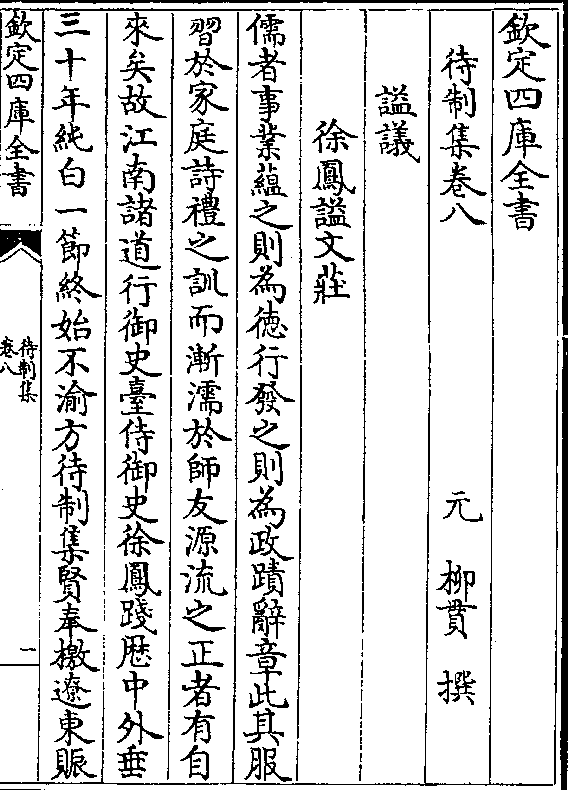 欽定四庫全書
待制集卷八　元　柳貫　撰
諡議
徐鳳諡文莊
儒者事業蘊之則為徳行發之則為政蹟辭章此其服
習於家庭詩禮之訓而漸濡於師友源流之正者有自
來矣故江南諸道行御史臺侍御史徐鳳踐歴中外垂
三十年純白一節終始不渝方待制集賢奉檄遼東賑
欽定四庫全書
待制集
卷八
一